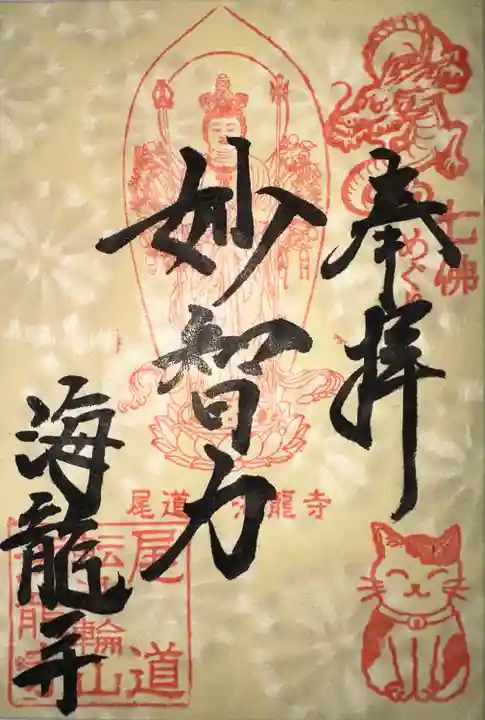 奉拝
七佛
めぐ
妙智力
尾道 海龍寺
海龍寺
尾道
転法輪山
海龍寺